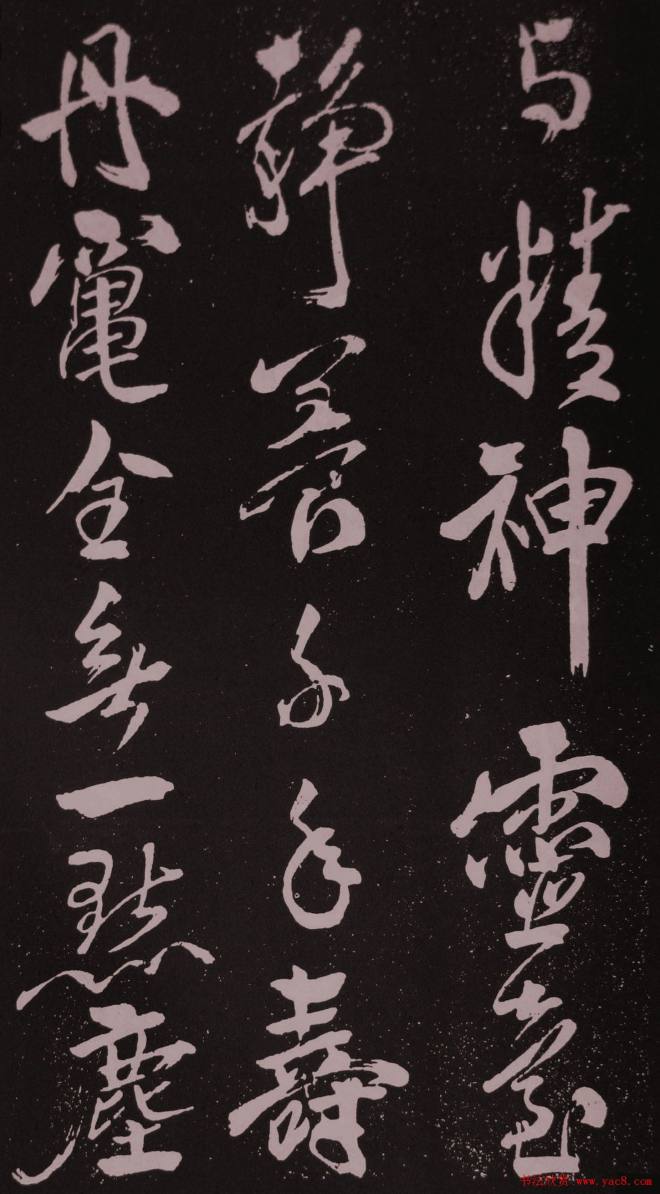 与精神靈臺
靜養千年壽
丹竈全無一點塵
书法欣赏 www.yac8.com